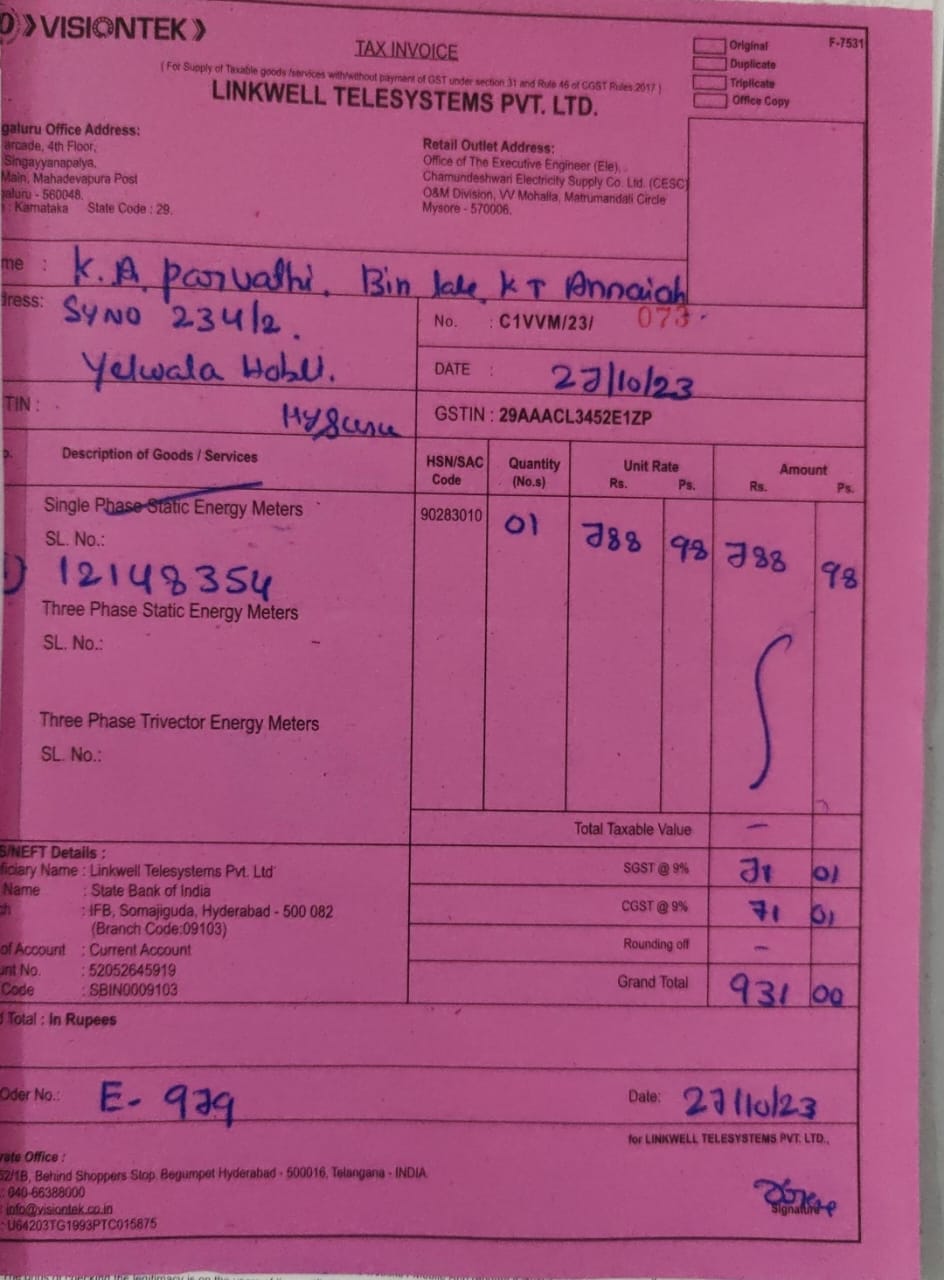 VISIONTEK
TAX INVOICE
( For Supply of Taxable goods /services with/without payment of GST under section 31 and Rule 46 of CGST Rules 2017 )
LINKWELL TELESYSTEMS PVT. LTD.
Original
Duplicate
Triplicate
Office Copy
F-7531
galuru Office Address:
arcade, 4th Floor,
Singayyanapalya,
Main, Mahadevapura Post
galuru - 560048.
: Karnataka State Code : 29.
Retail Outlet Address:
Office of The Executive Engineer (Ele),
Chamundeshwari Electricity Supply Co. Ltd. (CESC)
O&M Division, VV Mohalla, Matrumandali Circle
Mysore - 570006.
me : K. A. Parvathi. Bin late K T Annaiah
dress: SYNO 234/2.
Yelwala Hobli.
Mysuru
TIN :
No. : C1VVM/23/ 073
DATE : 27/10/23
GSTIN : 29AAACL3452E1ZP
Description of Goods / Services HSN/SAC Code Quantity (No.s) Unit Rate Rs. Ps. Amount Rs. Ps.
Single Phase Static Energy Meters 90283010 01 788 98 788 98
SL. No.:
12148354
Three Phase Static Energy Meters
SL. No.:
Three Phase Trivector Energy Meters
SL. No.:
Total Taxable Value –
SGST @ 9% 71 01
CGST @ 9% 71 01
Rounding off –
Grand Total 931 00
S/NEFT Details :
ficiary Name : Linkwell Telesystems Pvt. Ltd
Name : State Bank of India
ch : IFB, Somajiguda, Hyderabad - 500 082
(Branch Code:09103)
of Account : Current Account
unt No. : 52052645919
Code : SBIN0009103
d Total : In Rupees
Oder No.: E- 979
Date: 27/10/23
for LINKWELL TELESYSTEMS PVT. LTD.,
Signature
rate Office :
52/1B, Behind Shoppers Stop, Begumpet Hyderabad - 500016, Telangana - INDIA
: 040-66388000
: info@visiontek.co.in
: U64203TG1993PTC015875